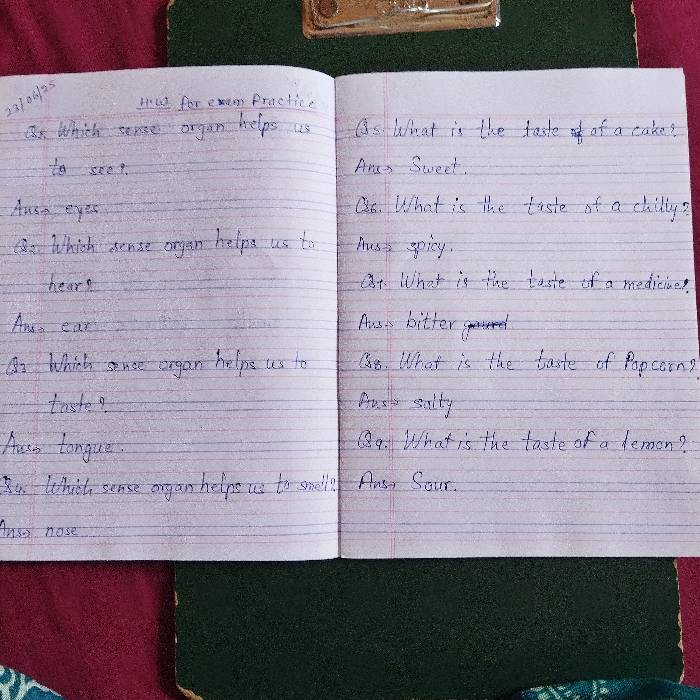 23/06/25
H.W for exam Practice
Q1. Which sense organ helps us
to see?
Ans→ eyes
Q2. Which sense organ helps us to
hear?
Ans→ ear
Q3. Which sense organ helps us to
taste?
Ans→ tongue.
Q4. Which sense organ helps us to smell?
Ans→ nose
Q5. What is the taste of of a cake?
Ans→ Sweet.
Q6. What is the taste of a chilly?
Ans→ spicy.
Q7. What is the taste of a medicine?
Ans→ bitter gourd
Q8. What is the taste of Popcorn?
Ans→ salty
Q9. What is the taste of a lemon?
Ans→ Sour.